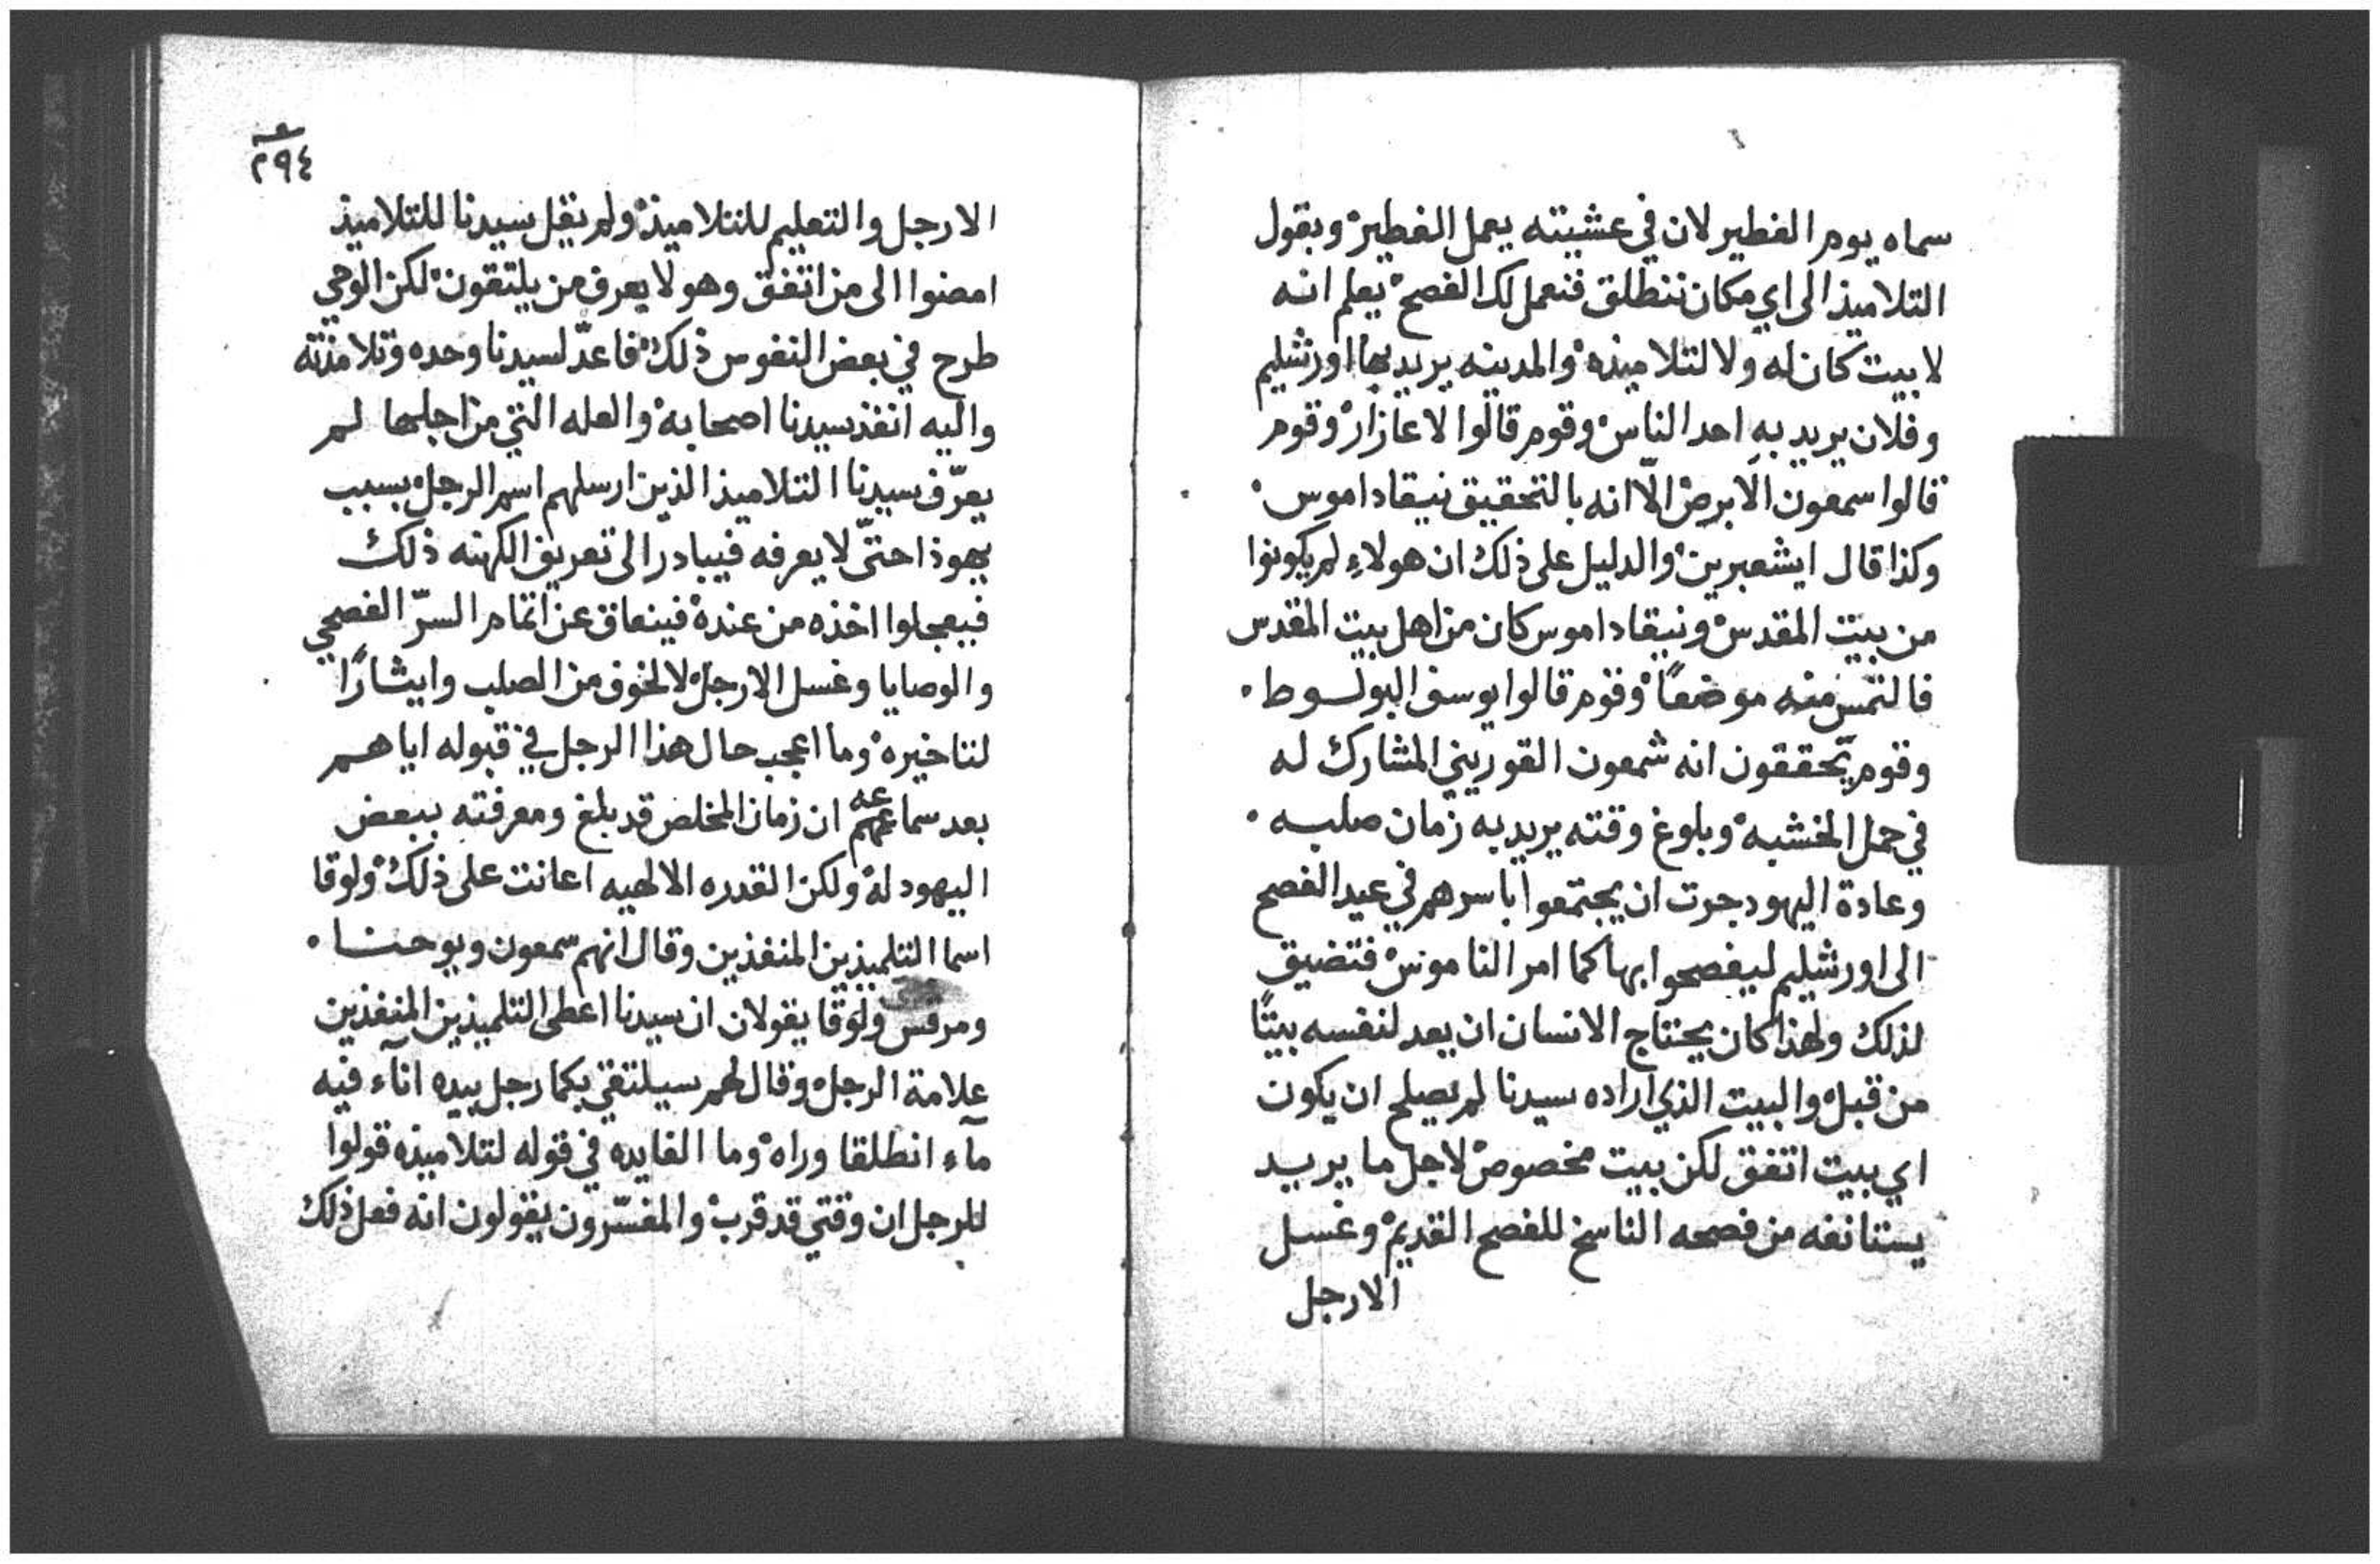 سماه يوم الفطير لان في عشيته يعمل الفطير وبقول
التلاميذ الى اي مكان ننطلق فنعمل لك الفصح يعلم انه
لا بيت كان له ولا لتلاميذه والمدينه يريد بها اورشليم
وفلان يريد به احد الناس وقوم قالوا لاعازار وقوم
قالوا سمعون الابرص الّا انه بالتحقيق نيقاداموس
وكذا قال ايشعبرين والدليل على ذلك ان هولاءِ لم يكونوا
من بيت المقدس ونيقاداموس كان من اهل بيت المقدس
فالتمس منه موضعًا وقوم قالوا يوسف البولوط
وقوم يحققون انه شمعون القوريني المشارك له
في حمل الخشبه وبلوغ وقته يريد به زمان صلبه
وعادة اليهود جرت ان يجتمعوا باسرهم في عيد الفصح
الى اورشليم ليفصحوا بها كما امر الناموس فتضيق
لذلك ولهذا كان يحتاج الانسان ان يعد لنفسه بيتًا
من قبل والبيت الذي اراده سيدنا لم يصلح ان يكون
اي بيت اتفق لكن بيت مخصوص لاجل ما يريد
يستانفه من فصحه الناسخ للفصح القديم وغسل
الارجل
٢٩٤
الارجل والتعليم للتلاميذ ولم يقل سيدنا للتلاميذ
امضوا الى من اتفق وهو لا يعرف من يلتقون لكن الوحي
طرح في بعض النفوس ذلك فاعدّ لسيدنا وحده وتلامذته
واليه انفذ سيدنا اصحابه والعله التي من اجلها لم
يعرّف سيدنا التلاميذ الذين ارسلهم اسم الرجل بسبب
يهوذا حتّى لا يعرفه فيبادر الى تعريف الكهنه ذلك
فيعجلوا اخذه من عنده فينعاق عن اتمام السرّ الفصحي
والوصايا وغسل الارجل لا لخوف من الصلب وايثارًا
لتاخيره وما اعجب حال هذا الرجل في قبوله اياهم
بعد سماعه منهم ان زمان المخلص قد بلغ ومعرفته ببعض
اليهود له ولكن القدره الالهيه اعانت على ذلك ولوقا
اسما التلميذين المنفذين وقال انهم سمعون ويوحنا
ومرقس ولوقا يقولان ان سيدنا اعطى التلميذين المنفذين
علامة الرجل وقال لهم سيلتقي بكما رجل بيده اناء فيه
مآء انطلقا وراه وما الفايده في قوله لتلاميذه قولوا
للرجل ان وقتي قد قرب والمفسّرون يقولون انه فعل ذلك